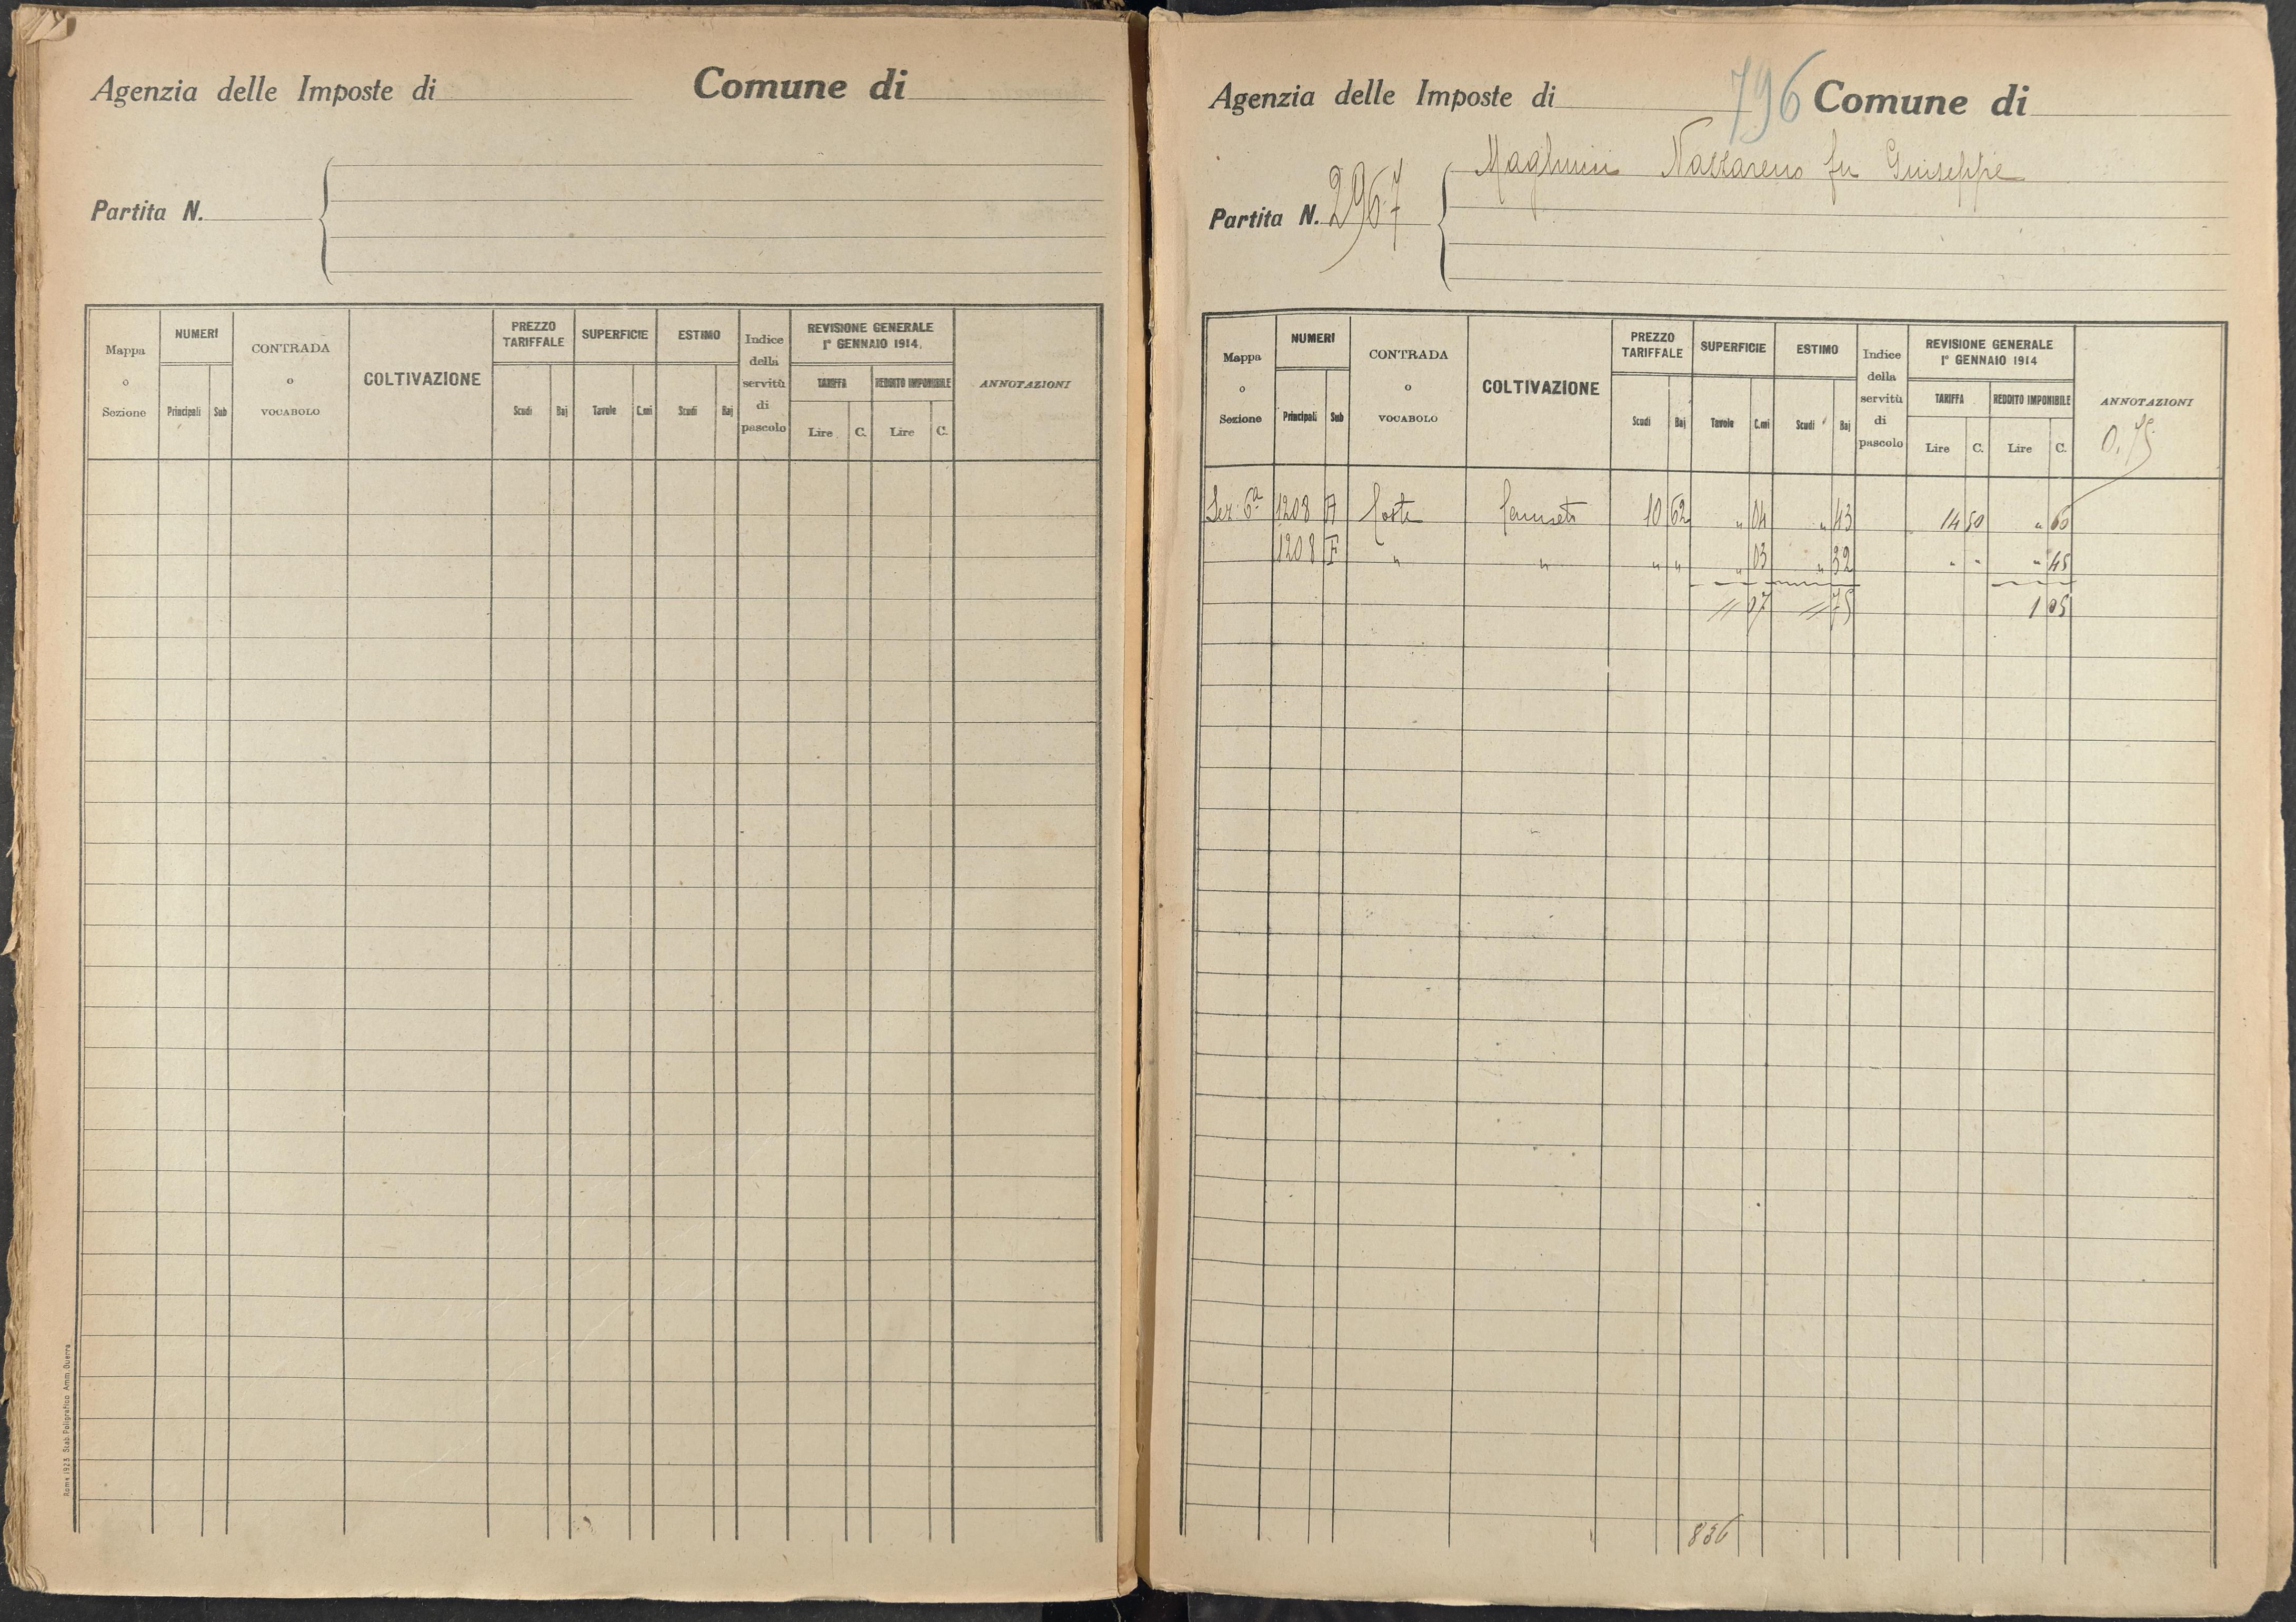 Agenzia delle Imposte di Comune di
Partita N.
Mappa o Sezione
NUMERI
Principali Sub
CONTRADA o VOCABOLO
COLTIVAZIONE
PREZZO TARIFFALE
Scudi Baj
SUPERFICIE
Tavole C.mi
ESTIMO
Scudi Baj
Indice della servitù di pascolo
REVISIONE GENERALE
1° GENNAIO 1914.
TARIFFA REDDITO IMPONIBILE
Lire C. Lire C.
ANNOTAZIONI
Roma 1923 Stab. Poligrafico Amm. Guerra
Agenzia delle Imposte di 796 Comune di
Nazzareno fu Giuseppe
Partita N. 2967
Mappa o Sezione
NUMERI
Principali Sub
CONTRADA o VOCABOLO
COLTIVAZIONE
PREZZO TARIFFALE
Scudi Baj
SUPERFICIE
Tavole C.mi
ESTIMO
Scudi Baj
Indice della servitù di pascolo
REVISIONE GENERALE
1° GENNAIO 1914
TARIFFA REDDITO IMPONIBILE
Lire C. Lire C.
ANNOTAZIONI
0.75
Sez. 6ª 1208 A Coste 10 62 " 04 " 43 14 50 " 60
1208 F " " " " " 03 " 32 " " " 45
" 07 " 75 1 05
836